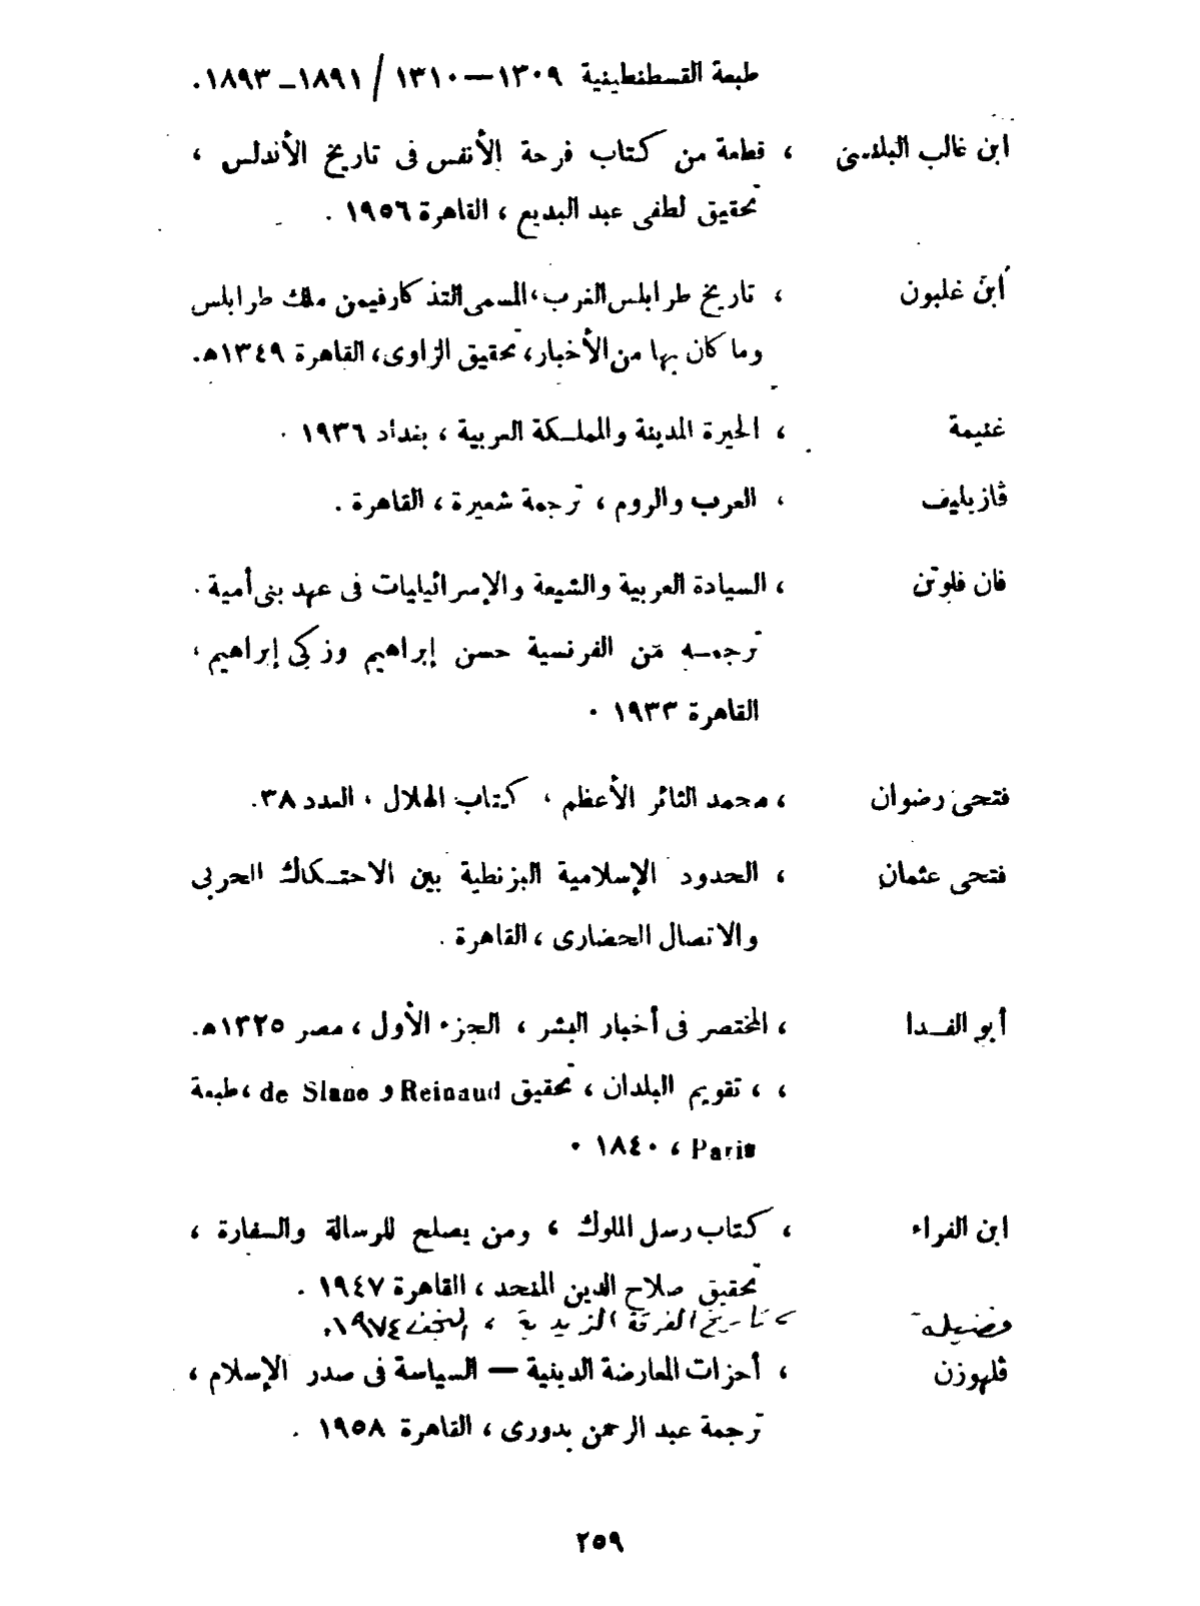 طبعة القسطنطينية ١٣٠٩—١٣١٠ / ١٨٩١ـ ١٨٩٣.
ابن غالب البلنسى ، قطعة من كتاب فرحة الأنفس فى تاريخ الأندلس ،
تحقيق لطفى عبد البديع ، القاهرة ١٩٥٦ .
أبن غلبون ، تاريخ طرابلس الغرب، المسمى التذكار فيمن ملك طرابلس
وما كان بها من الأخبار، تحقيق الزاوى، القاهرة ١٣٤٩هـ.
غنيمة ، الحيرة المدينة والمملكة العربية ، بغداد ١٩٣٦ .
ڤازيليف ، العرب والروم ، ترجمة شعيرة ، القاهرة .
فان فلوتن ، السيادة العربية والشيعة والإسرائيليات فى عهد بنى أمية .
ترجمه من الفرنسية حسن إبراهيم وزكى إبراهيم ،
القاهرة ١٩٣٣ .
فتحى رضوان ، محمد الثائر الأعظم ، كتاب الهلال ، العدد ٣٨.
فتحى عثمان ، الحدود الإسلامية البزنطية بين الاحتكاك الحربى
والاتصال الحضارى ، القاهرة .
أبو الفدا ، المختصر فى أخبار البشر ، الجزء الأول ، مصر ١٣٢٥هـ.
، ، تقويم البلدان ، تحقيق Reinaud و de Slane ، طبعة
Paris ، ١٨٤٠ .
ابن الفراء ، كتاب رسل الملوك ، ومن يصلح للرسالة والسفارة ،
تحقيق صلاح الدين المنجد ، القاهرة ١٩٤٧ .
فضيلة ، تاريخ الفرقة الزيدية ، النجف ١٩٧٤.
ڤلهوزن ، أحزات المعارضة الدينية — السياسة فى صدر الإسلام ،
ترجمة عبد الرحمن بدورى ، القاهرة ١٩٥٨ .
٢٥٩